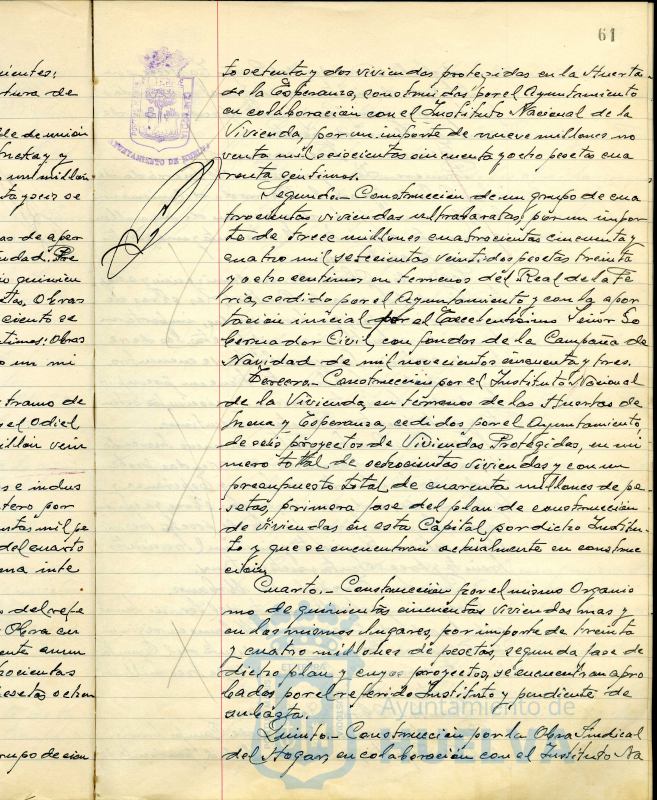 61
to setenta y dos viviendas protegidas en la Huerta
de la Esperanza, construidas por el Ayuntamiento
en colaboración con el Instituto Nacional de la
Vivienda, por un importe de nueve millones no
venta mil seiscientos cincuenta y ocho pesetas cua
renta centimos.
Segundo.- Construcción de un grupo de cua
trocientas viviendas ultrabaratas, por un impor
te de trece millones cuatrocientos cincuenta y
cuatro mil setecientos veintidos pesetas treinta
y ocho centimos en terrenos del Real de la Fe
ria, cedido por el Ayuntamiento y con la apor
tación inicial por el Excelentisimo Señor Go
bernador Civil, con fondos de la Campaña de
Navidad de mil novecientos cincuenta y tres.
Tercero.- Construcción por el Instituto Nacional
de la Vivienda, en terrenos de las Huertas de
Mena y Esperanza, cedidos por el Ayuntamiento,
de seis proyectos de Viviendas Protegidas, en nú
mero total de ochocientas viviendas y con un
presupuesto total de cuarenta millones de pe-
setas, primera fase del plan de construcción
de viviendas en esta Capital, por dicho Institu-
to y que se encuentran actualmente en construc
ción.
Cuarto.- Construcción por el mismo Organis
mo de quinientas cincuentas viviendas mas y
en los mismos lugares, por importe de treinta
y cuatro millones de pesetas, segunda fase de
dicho plan y cuyos proyectos, se encuentran apro
bados por el referido Instituto y pendiente de
subasta.
Quinto.- Construcción por la Obra Sindical
del Hogar, en colaboración con el Instituto Na
AYUNTAMIENTO DE HUELVA
Ayuntamiento de
HUELVA
cientes:
rtura de
le de union
un millón
ta y seis se
as de aper
udad. Pre
quinien
etas. Obras
ciento se
timos: Obras
o un mi
tramo de
el Odiel
illón vein
s e indus
tero por
entas mil pe
del cuarto
ma inte
s del refe
Obra en
ente aun
rocientas
esetas ochen
rupo de cien